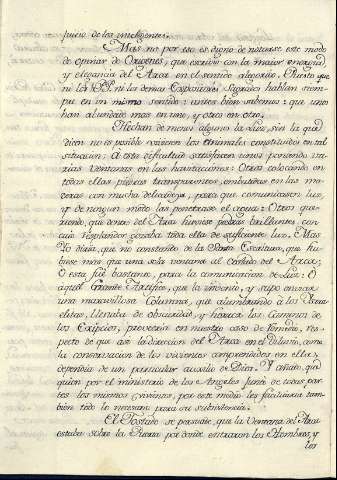 juicio de los inteligentes.
Mas no por eso es digno de notarse este modo
de opinar de Origenes, que escrivió con la maior energia,
y elegancia del Arca en el sentido alegorico. Puesto que
ni los PP. ni los demas Expositores Sagrados hablan siem-
pre en un mismo sentido: antes bien sabemos: que unos
han abundado mas en uno, y otros en otro.
Hechan de menos algunos la Luz, sin la qual
dicen no es posible viviesen los Animales constituidos en tal
situacion: A esta dificultad satisfacen unos poniendo va-
rias Ventanas en las havitaciones: Otros colocando en
todas ellas piedras transparentes, embutidas en las ma-
deras con mucha delicadeza, para que comunicasen luz,
y de ningun modo las penetrase el agua: Otros que-
riendo, que dentro del Arca huviese piedras brillantes, con
cuio resplandor gozaba toda ella de suficiente luz. Mas
Yo diria, que no constando de la Santa Escritura, que hu-
biese mas que una sola ventana al Cavildo del Arca;
O esta fué bastante, para la comunicacion de Luz: O
aquel Grande Artifice, que la inventó, y supo enviar
una maravillosa Columna, que alumbrando á los Israe-
litas, llenaba de obscuridad, y horror los Caminos de
los Exipcios, proveeria en nuestro caso de remedio, res-
pecto de que asi la direccion del Arca en el Diluvio, como
la conservacion de los vivientes comprendidos en ella,
dependia de un particular auxilio de Dios. Y añado, que
quien por el ministerio de los Angeles juntó de todas par-
tes los mismos vivientes, por este modo les facilitaria tam-
bien todo lo necesario para su subsistencia.
El Tostado se persuade, que la Ventana del Arca
estaba sobre la Puerta por donde entraron los Hombres, y
los